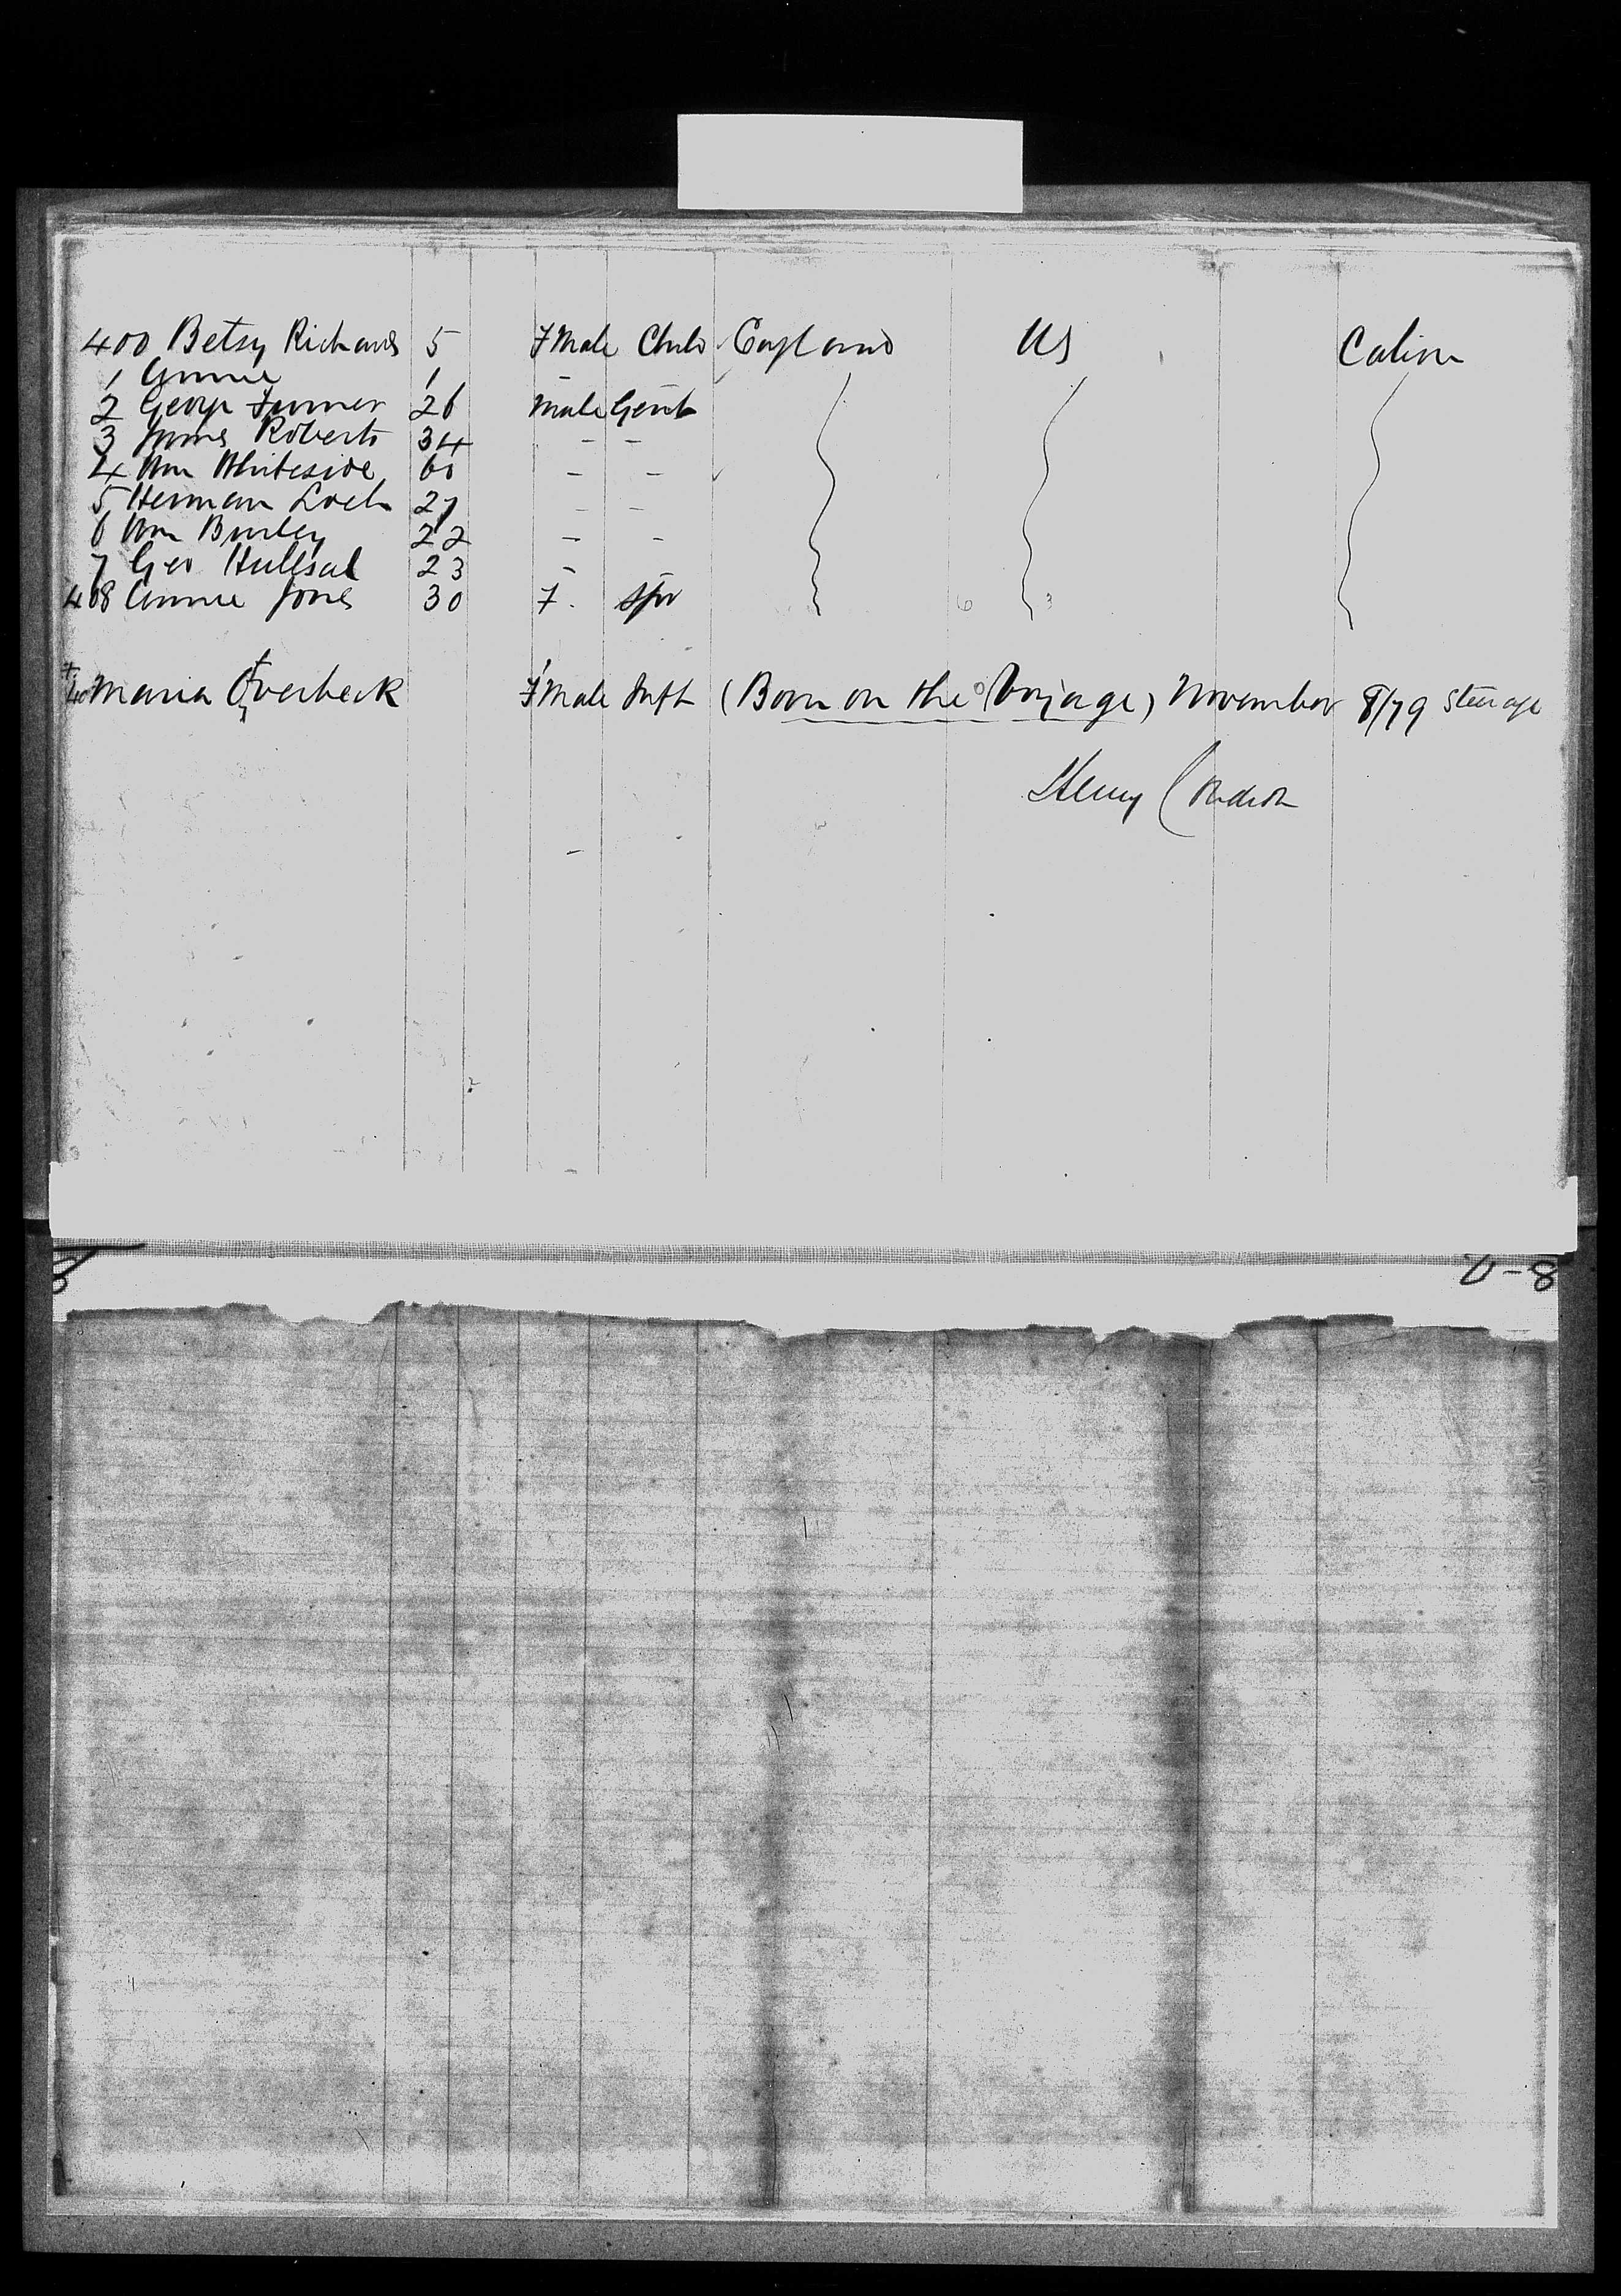 400 Betsy Richards 5 Fmale Child England US Cabin
1 Annie 1 - -
2 George Turner 26 Male Gent
3 James Roberts 34 - -
4 Wm Whiteside 60 - -
5 Herman Loeb 27 - -
6 Wm Burley 22 - -
7 Geo 23 - -
408 Annie Jones 30 F. Spr
Maria Overbeck Fmale Inft (Born on the Voyage) November 8/79 Steerage
Henry